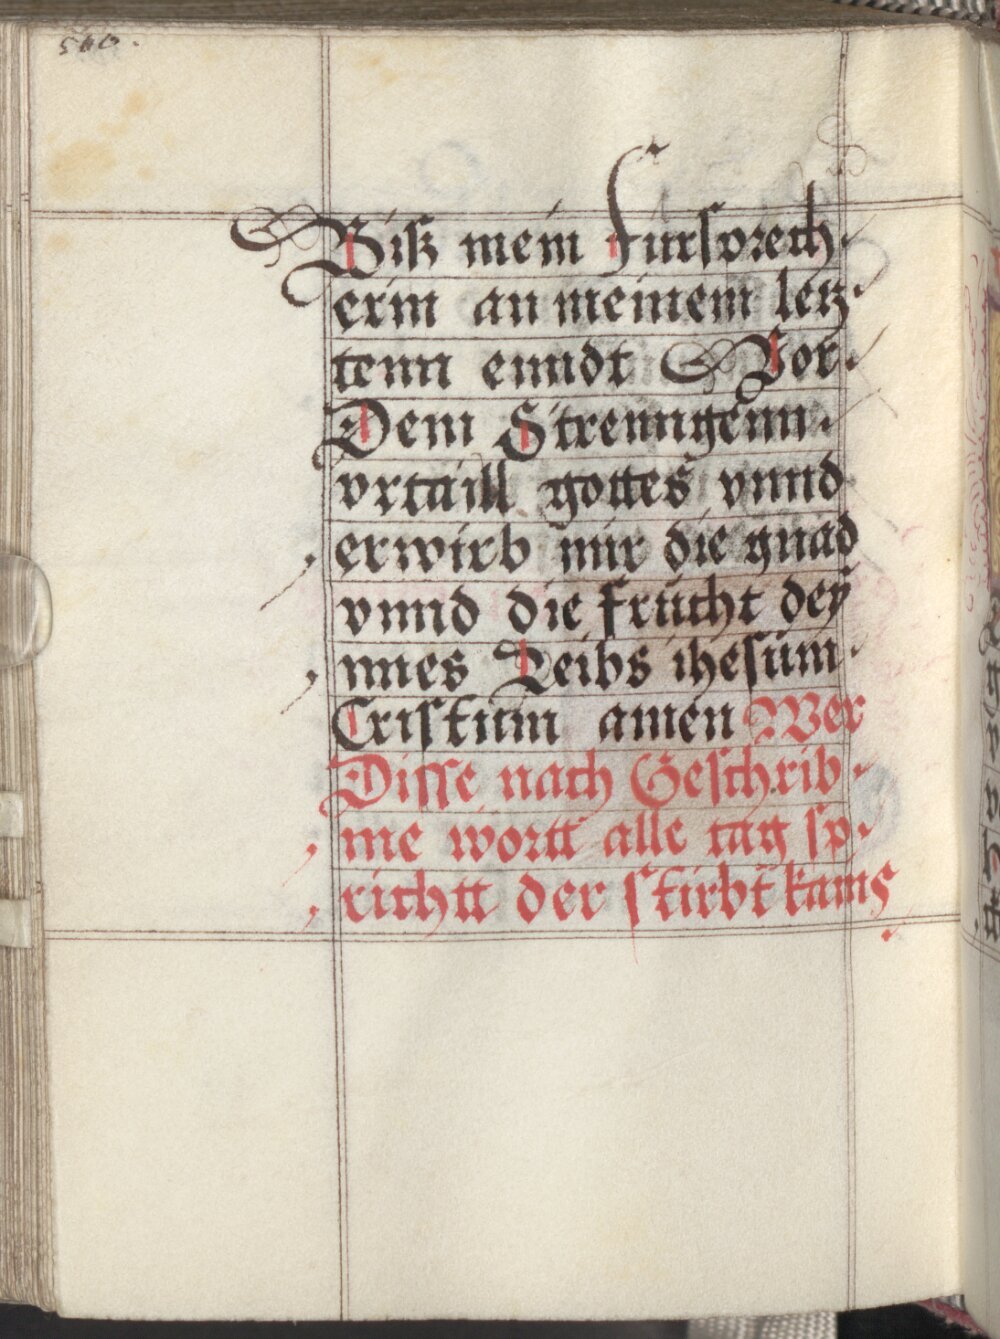 560.
Bisz mein fürsprech
erin an meinem letz
tenn enndt Vor
Dem Strenngenn
vrtaill gottes vnnd
erwirb mir die gnad
vnnd die frücht dey
nnes Leibs ihesüm
Cristüm amen Wer
Disse nach Geschrib
ne wortt alle tag sp
richtt der stirbt kains